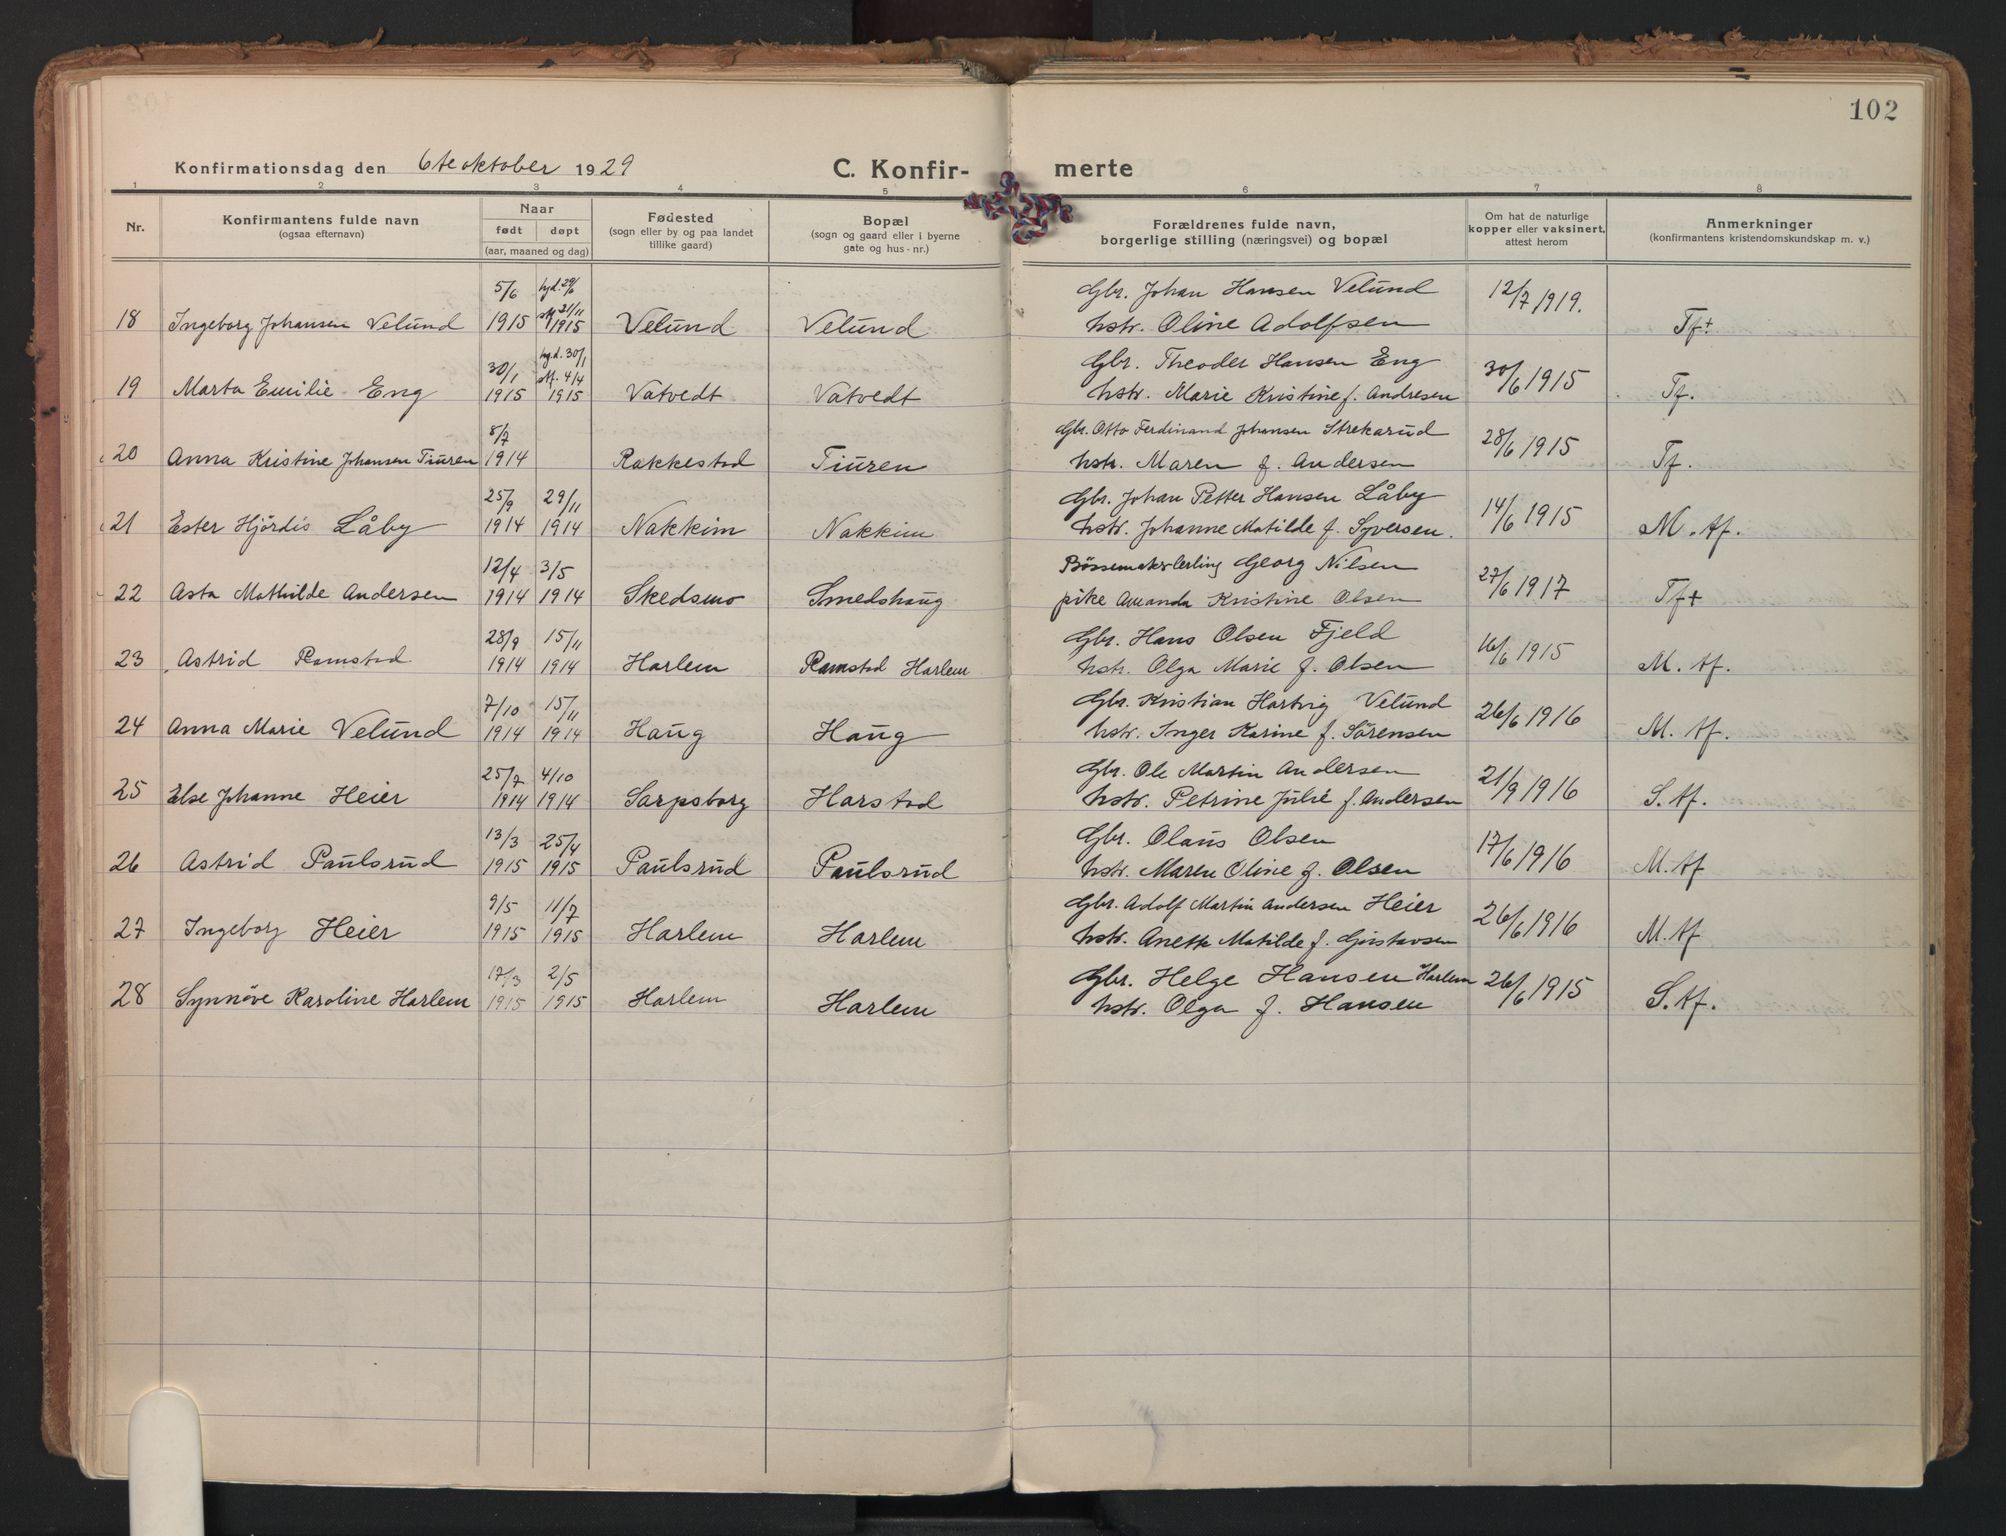 102
Konfirmationsdag den 6te oktober 1929 C. Konfir- merte
1 2 3 4 5 6 7 8
Nr. Konfirmantens fulde navn (ogsaa efternavn) Naar født døpt (aar, maaned og dag) Fødested (sogn eller by og paa landet tillike gaard) Bopæl (sogn og gaard eller i byerne gate og hus-nr.) Forældrenes fulde navn, borgerlige stilling (næringsvei) og bopæl Om hat de naturlige kopper eller vaksinert, attest herom Anmerkninger (konfirmantens kristendomskundskap m. v.)
5/6 hjd. 29/6 Gbr. Johan Hansen Velund 12/7 1919.
18 Ingeborg Johansen Velund 1915 st. 21/11 1915 Velund Velund hstr. Oline Adolfsen Tf+
30/1 hjd. 30/1 Gbr. Theodor Hansen Eng 30/6 1915
19 Marta Emilie Eng 1915 st. 4/4 1915 Vatvedt Vatvedt hstr. Marie Kristine f. Andresen Tf.
8/7 Gbr. Otto Ferdinand Johansen Strekarud 28/6 1915
20 Anna Kristine Johansen Tiuren 1914 Rakkestad Tiuren hstr. Maren f. Andersen Tf.
25/9 29/11 Gbr. Johan Petter Hansen Låby 14/6 1915
21 Ester Hjördis Låby 1914 1914 Nakkim Nakkim hstr. Johanne Matilde f. Syversen. M. tf.
12/4 3/5 Bössemakerlerling Georg Nilsen 27/6 1917
22 Asta Mathilde Andersen 1914 1914 Skedsmo Smedshaug pike Amanda Kristine Olsen Tf+
28/9 15/11 Gbr. Hans Olsen Fjeld 16/6 1915
23 Astrid Ramstad 1914 1914 Harlem Ramstad Harlem hstr. Olga Marie f. Olsen M. tf.
7/10 15/11 Gbr. Kristian Hartvig Velund 26/6 1916
24 Anna Marie Velund 1914 1914 Haug Haug hstr. Inger Karine f. Sörensen M. tf.
25/7 4/10 Gbr. Ole Martin Andersen 21/9 1916
25 Else Johanne Heier 1914 1914 Sarpsborg Harstad hstr. Petrine Julie f. Andersen S. tf.
13/3 25/4 Gbr. Olaus Olsen 17/6 1916
26 Astrid Paulsrud 1915 1915 Paulsrud Paulsrud hstr. Maren Oline f. Olsen M. tf
9/5 11/7 Gbr. Adolf Martin Andersen Heier 26/6 1916
27 Ingeborg Heier 1915 1915 Harlem Harlem hstr. Anette Matilde f. Gustavsen M. tf
17/3 2/5 Gbr. Helge Hansen Harlem 26/6 1915
28 Synnöve Karoline Harlem 1915 1915 Harlem Harlem hstr. Olga f. Hansen S. tf.